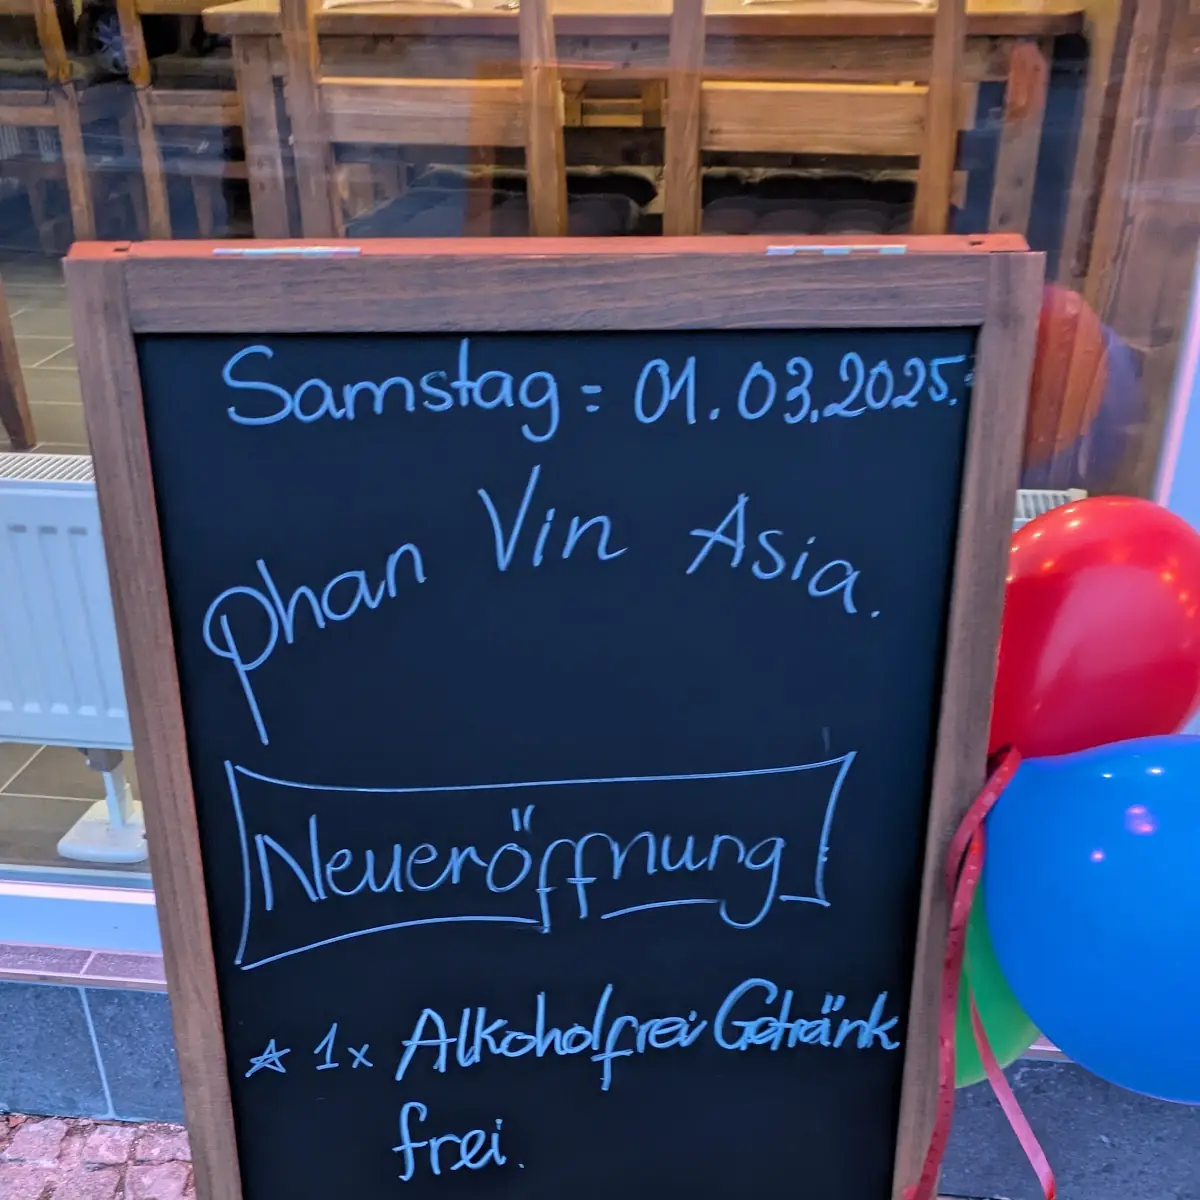 Samstag: 01.03.2025.
Phan Vin Asia.
Neueröffnung
☆ 1x Alkoholfrei Getränk
frei.